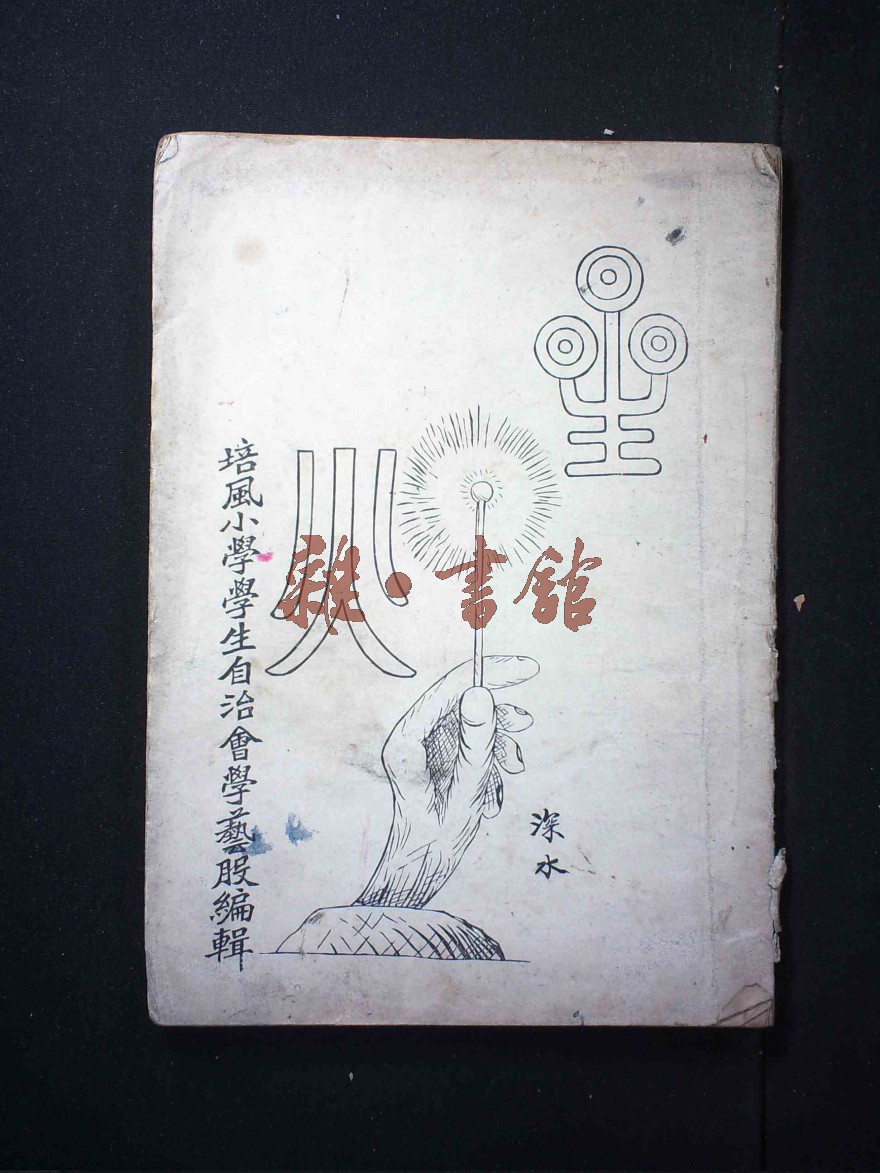 星火
培風小學學生自治會學藝股編輯
深水
雜·書舘